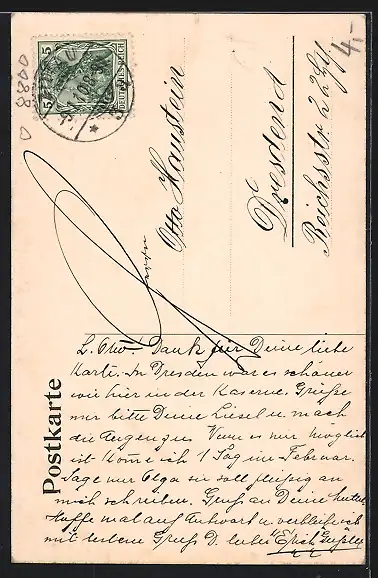 5 5
DEUTSCHES REICH
0088
4,-
Herrn
Otto Haustein
Dresden
Reichsstr. 22
Postkarte
L. Otto! Dank für Deine liebe
Karte. In Dresden war es schöner
wie hier in der Kaserne. Grüße
mir bitte Deine Liesel u. mach
die Augen zu. Wenn es nur möglich
ist komme ich 1 Tag im Februar.
Sage nur Olga sie soll fleißig an
mich schreiben. Gruß an Deine
Hoffe mal auf Antwort u. verbleibe ich
mit bestem Gruß D. lieber Erich